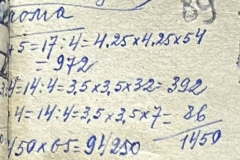 рома 89
+5=17:4=4.25x4,25x54
=972
4=14:4=3,5x3,5x32=392
4=14:4=3,5x3,5x7=86
1450
1450x65=94250